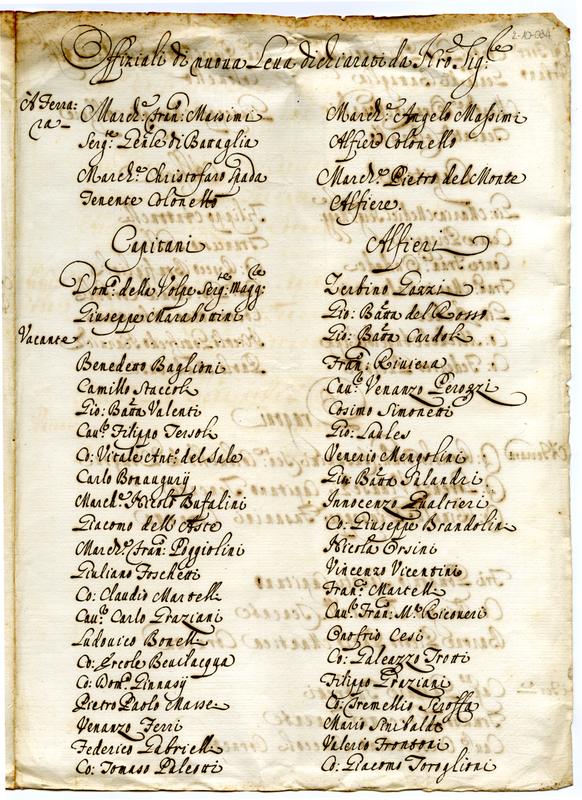 2-10-084
Offiziali di nuova Leva dichiarati da Nro. Sig.re
A Ferra:
ra
March.e Fran: Massimi
Serg.te Gen̄le di Bataglia
March.e Christofaro Spada
Tenente Colonello
March.e Angelo Massimi
Alfier Colonello
March.e Pietro del Monte
Alfiere
Capitani
Dom.o della Volpe Serg.te Magg.re
Giuseppe Marabottini
Vacante
Benedetto Baglioni
Camillo Staccoli
Gio: Batta Valenti
Cau.re Filippo Tersoli
Co: Vitale Ant.o del Sale
Carlo Bonaugurij
March.e Nicolo Bufalini
Giacomo dell'Aste
March.e Fran: Poggiolini
Giuliano Foschetti
Co: Claudio Martelli
Cau.re Carlo Graziani
Ludouico Bonelli
Co: Ercole Beuilacqua
Co: Dom.o Ginnasij
Pietro Paolo Massei
Venanzo Ferri
Federico Gabrielli
Co: Tomaso Paleotti
Alfieri
Zerbino Gazzi
Gio: Batta del Rosso
Gio: Batta Cardoli
Fran: Riuiera
Cau.re Venanzo Perozzi
Cosimo Simonetti
Gio: Laules
Venerio Mengolini
Gio: Batta Galandri
Innocenzo Gualtieri
Co: Giuseppe Brandolini
Nicola Orsini
Vincenzo Vicentini
Fran: Martelli
Cau.re Fran: M.a Riconeri
Onofrio Cesi
Co: Galeazzo Trotti
Filippo Graziani
Co: Tremellio Scroffa
Mario Sinibaldi
Valerio Frontoni
Co: Giacomo Toroglioni